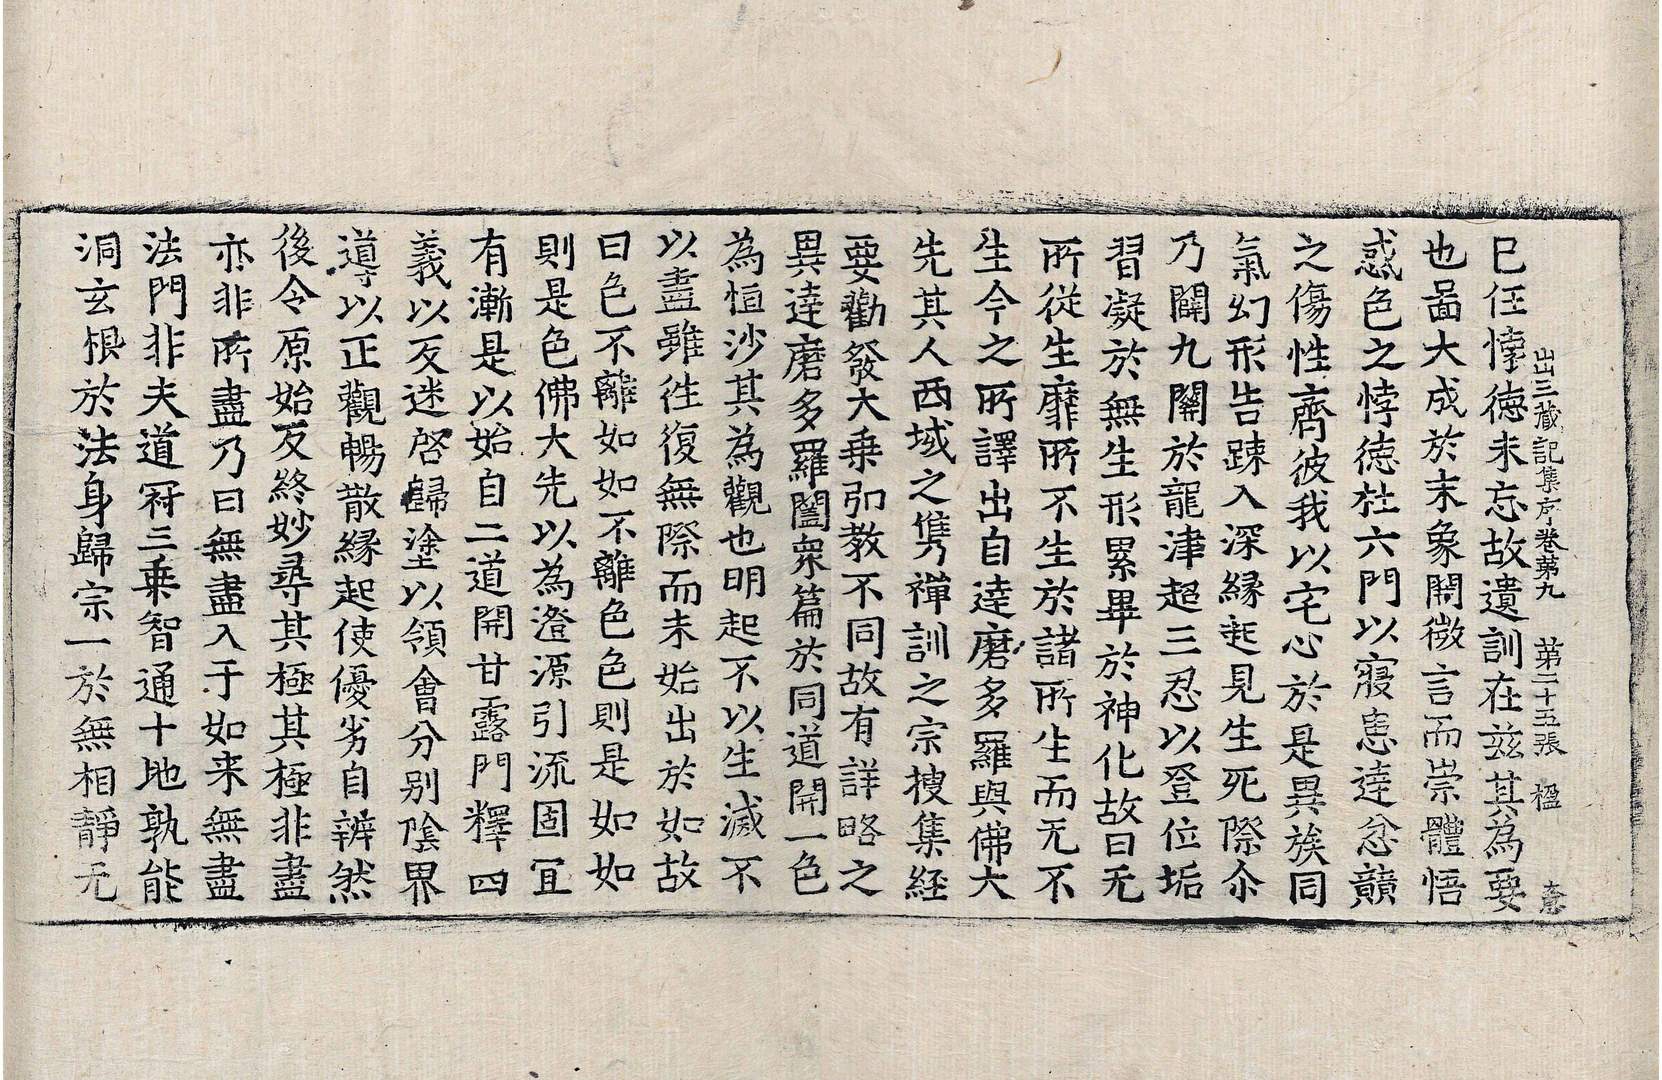 出三藏記集序卷苐九 苐二十五張 楹
已任悖德未忘故遺訓在茲其為要
也啚大成於末象開微言而崇體悟
惑色之悖德杜六門以寢患達忿䫴
之傷性齊彼我以宅心於是異族同
氣幻形告踈入深緣起見生死際尒
乃闢九關於龍津超三忍以登位垢
習凝於無生形累畢於神化故曰无
所從生靡所不生於諸所生而无不
生今之所譯出自達磨多羅與佛大
先其人西域之雋禪訓之宗搜集経
要勸發大乗弘教不同故有詳略之
異達磨多羅闔衆篇於同道開一色
為恒沙其為觀也明起不以生滅不
以盡雖徃復無際而未始出於如故
曰色不離如如不離色色則是如如
則是色佛大先以為澄源引流固冝
有漸是以始自二道開甘露門釋四
義以反迷啓歸塗以領會分別陰界
導以正觀暢散緣起使優劣自辨然
後令原始反終妙尋其極其極非盡
亦非所盡乃曰無盡入于如来無盡
法門非夫道冠三乗智通十地孰能
洞玄根於法身歸宗一於無相靜无